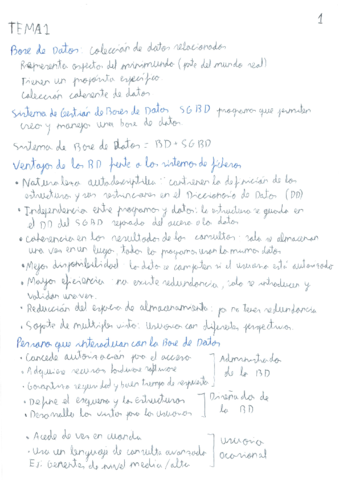 1
TEMA 1
Base de Datos colección de datos relacionados
Representa aspectos del minimundo (parte del mundo real)
Tienen un propósito específico
Colección coherente de datos
Sistema de Gestión de Bases de Datos SGBD programa que permiten
crear y manejar una base de datos
Sistema de Base de datos = BD + SGBD
Ventajas de las BD frente a los sistemas de ficheros
• Naturaleza autodescriptiva: contienen la definición de las
estructura y sus restricciones en el Diccionario de Datos (DD)
• Independencia entre programas y datos: la estructura se guarda en
el DD del SGBD separado del acceso a los datos
• Coherencia en los resultados de las consultas: solo se almacenan
una vez en un lugar, todos los programas usan los mismos datos
• Mejor disponibilidad los datos se comparten si el usuario está autorizado
• Mayor eficiencia no existe redundancia, solo se introducen y
validan una vez.
• Reducción del espacio de almacenamiento: ya no tener redundancia
• Soporte de multiples vistas: usuarios con diferentes perspectivas
Personas que interactuan con la Base de Datos
• Concede autorización para el acceso
• Adquiere recursos hardware software
• Garantiza seguridad y buen tiempo de respuesta
Administrador
de la BD
• Define el esquema y las estructuras
• Desarrolla las vistas para los usuarios
Diseñador de
la BD
• Accede de vez en cuando
• Usa un lenguaje de consulta avanzado
Ej. Gerentes de nivel medio/alto
usuario
ocasional